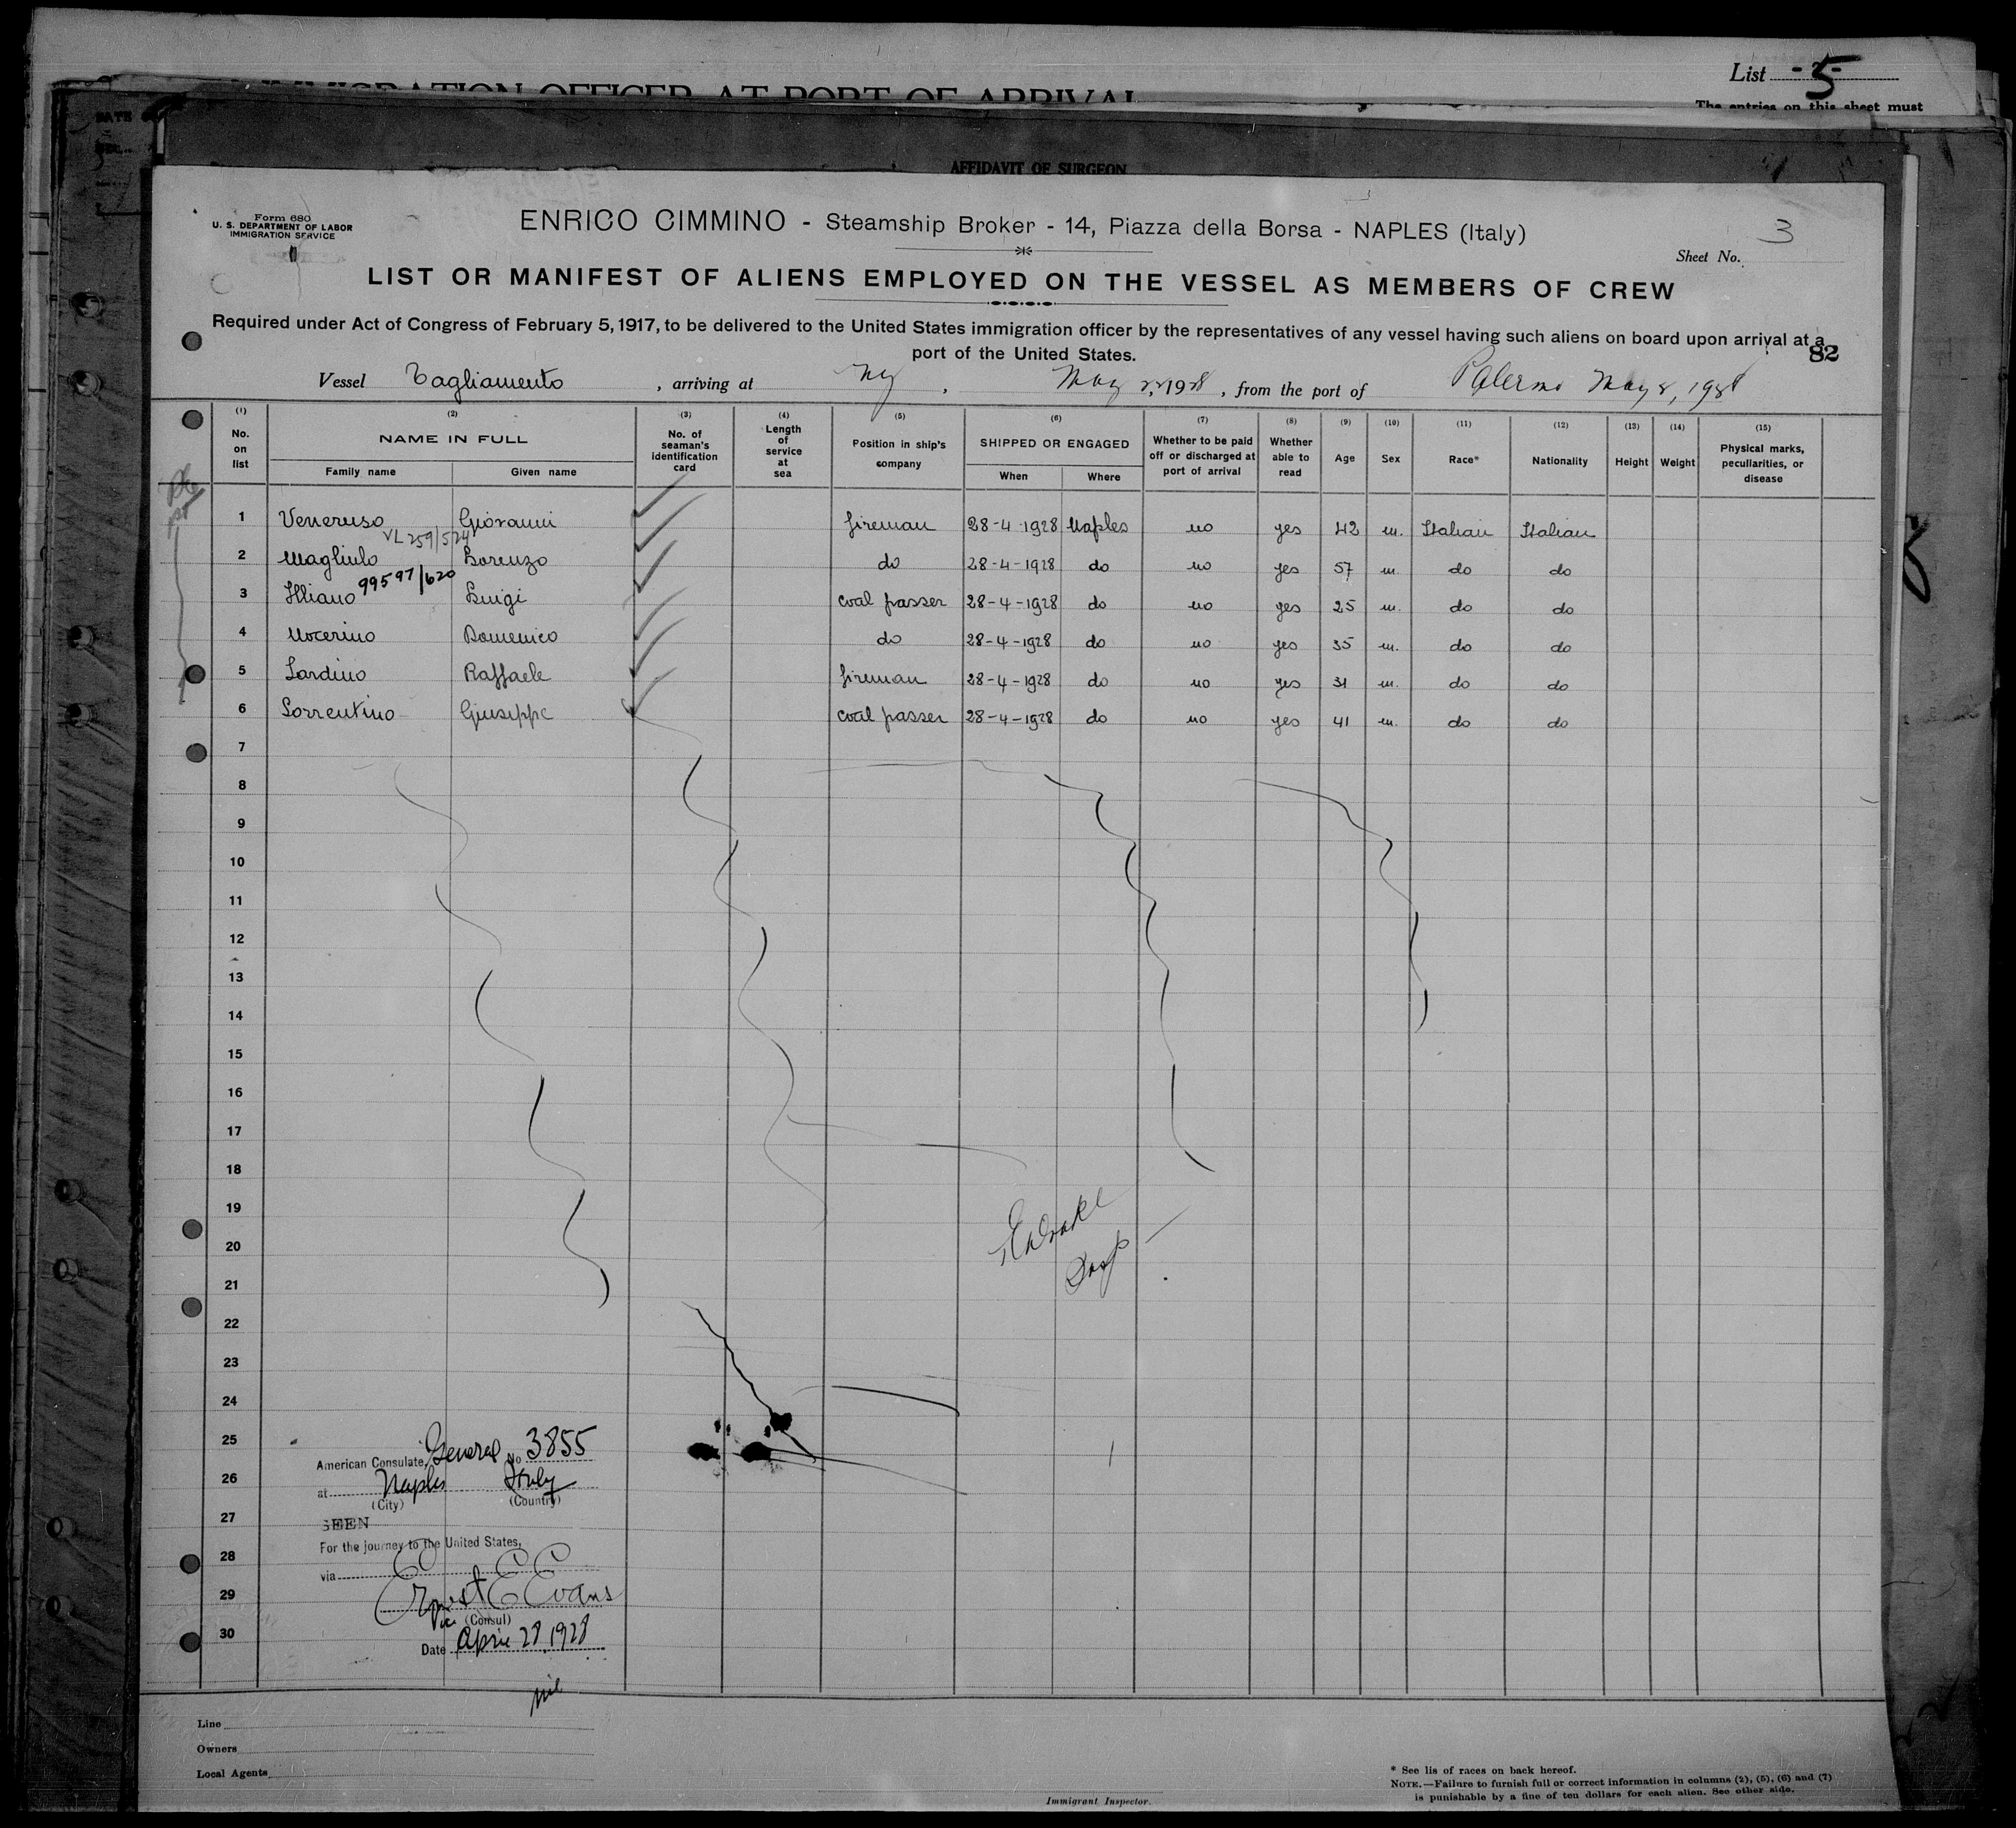 IMMIGRATION OFFICER AT PORT OF ARRIVAL
List - 5 -
The entries on this sheet must
DATE
AFFIDAVIT OF SURGEON
Form 680
U. S. DEPARTMENT OF LABOR
IMMIGRATION SERVICE
ENRICO CIMMINO - Steamship Broker - 14, Piazza della Borsa - NAPLES (Italy)
Sheet No. 3
LIST OR MANIFEST OF ALIENS EMPLOYED ON THE VESSEL AS MEMBERS OF CREW
Required under Act of Congress of February 5, 1917, to be delivered to the United States immigration officer by the representatives of any vessel having such aliens on board upon arrival at a
port of the United States.
82
Vessel Tagliamento, arriving at NY, May 22, 1928, from the port of Palermo May 8, 1928
(1) (2) (3) (4) (5) (6) (7) (8) (9) (10) (11) (12) (13) (14) (15)
No. on list NAME IN FULL No. of seaman's identification card Length of service at sea Position in ship's company SHIPPED OR ENGAGED Whether to be paid off or discharged at port of arrival Whether able to read Age Sex Race* Nationality Height Weight Physical marks, peculiarities, or disease
Family name Given name When Where
1 Veneruso Giovanni fireman 28-4-1928 Naples no yes 42 m. Italian Italian
VL 259/524
2 Magliulo Lorenzo do 28-4-1928 do no yes 57 m. do do
99597/620
3 Illiano Luigi coal passer 28-4-1928 do no yes 25 m. do do
4 Nocerino Domenico do 28-4-1928 do no yes 35 m. do do
5 Sardino Raffaele fireman 28-4-1928 do no yes 31 m. do do
6 Sorrentino Giuseppe coal passer 28-4-1928 do no yes 41 m. do do
7
8
9
10
11
12
13
14
15
16
17
18
19
20
21
22
23
24
25
26
27
28
29
30
American Consulate General No 3855
at Naples Italy
(City) (Country)
SEEN
For the journey to the United States,
via
Ernest E Evans
Vice (Consul)
Date April 28, 1928
nil
Line
Owners
Local Agents
Immigrant Inspector.
* See lis of races on back hereof.
NOTE.—Failure to furnish full or correct information in columns (2), (5), (6) and (7)
is punishable by a fine of ten dollars for each alien. See other side.